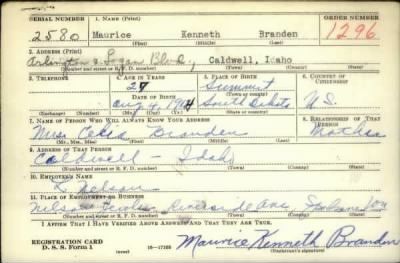 SERIAL NUMBER 1. NAME (Print) ORDER NUMBER
2580 Maurice Kenneth Branden 1296
(First) (Middle) (Last)
2. ADDRESS (Print)
Arlington & Logan Blvd., Caldwell, Idaho
(Number and street or R. F. D. number) (Town) (County) (State)
3. TELEPHONE 4. AGE IN YEARS 5. PLACE OF BIRTH 6. COUNTRY OF CITIZENSHIP
Summit
DATE OF BIRTH (Town or county)
Aug 4, South Dakota U.S.
(Exchange) (Number) (Mo.) (Day) (Yr.) (State or country)
7. NAME OF PERSON WHO WILL ALWAYS KNOW YOUR ADDRESS 8. RELATIONSHIP OF THAT PERSON
Mrs Branden Mother
(Mr., Mrs., Miss) (First) (Middle) (Last)
9. ADDRESS OF THAT PERSON
Caldwell - Idaho
(Number and street or R. F. D. number) (Town) (County) (State)
10. EMPLOYER'S NAME
Nelson
11. PLACE OF EMPLOYMENT OR BUSINESS
Nelson Riverside Ave
(Number and street or R. F. D. number) (Town) (County) (State)
I AFFIRM THAT I HAVE VERIFIED ABOVE ANSWERS AND THAT THEY ARE TRUE.
REGISTRATION CARD
D. S. S. Form 1 (over) Maurice Kenneth Branden